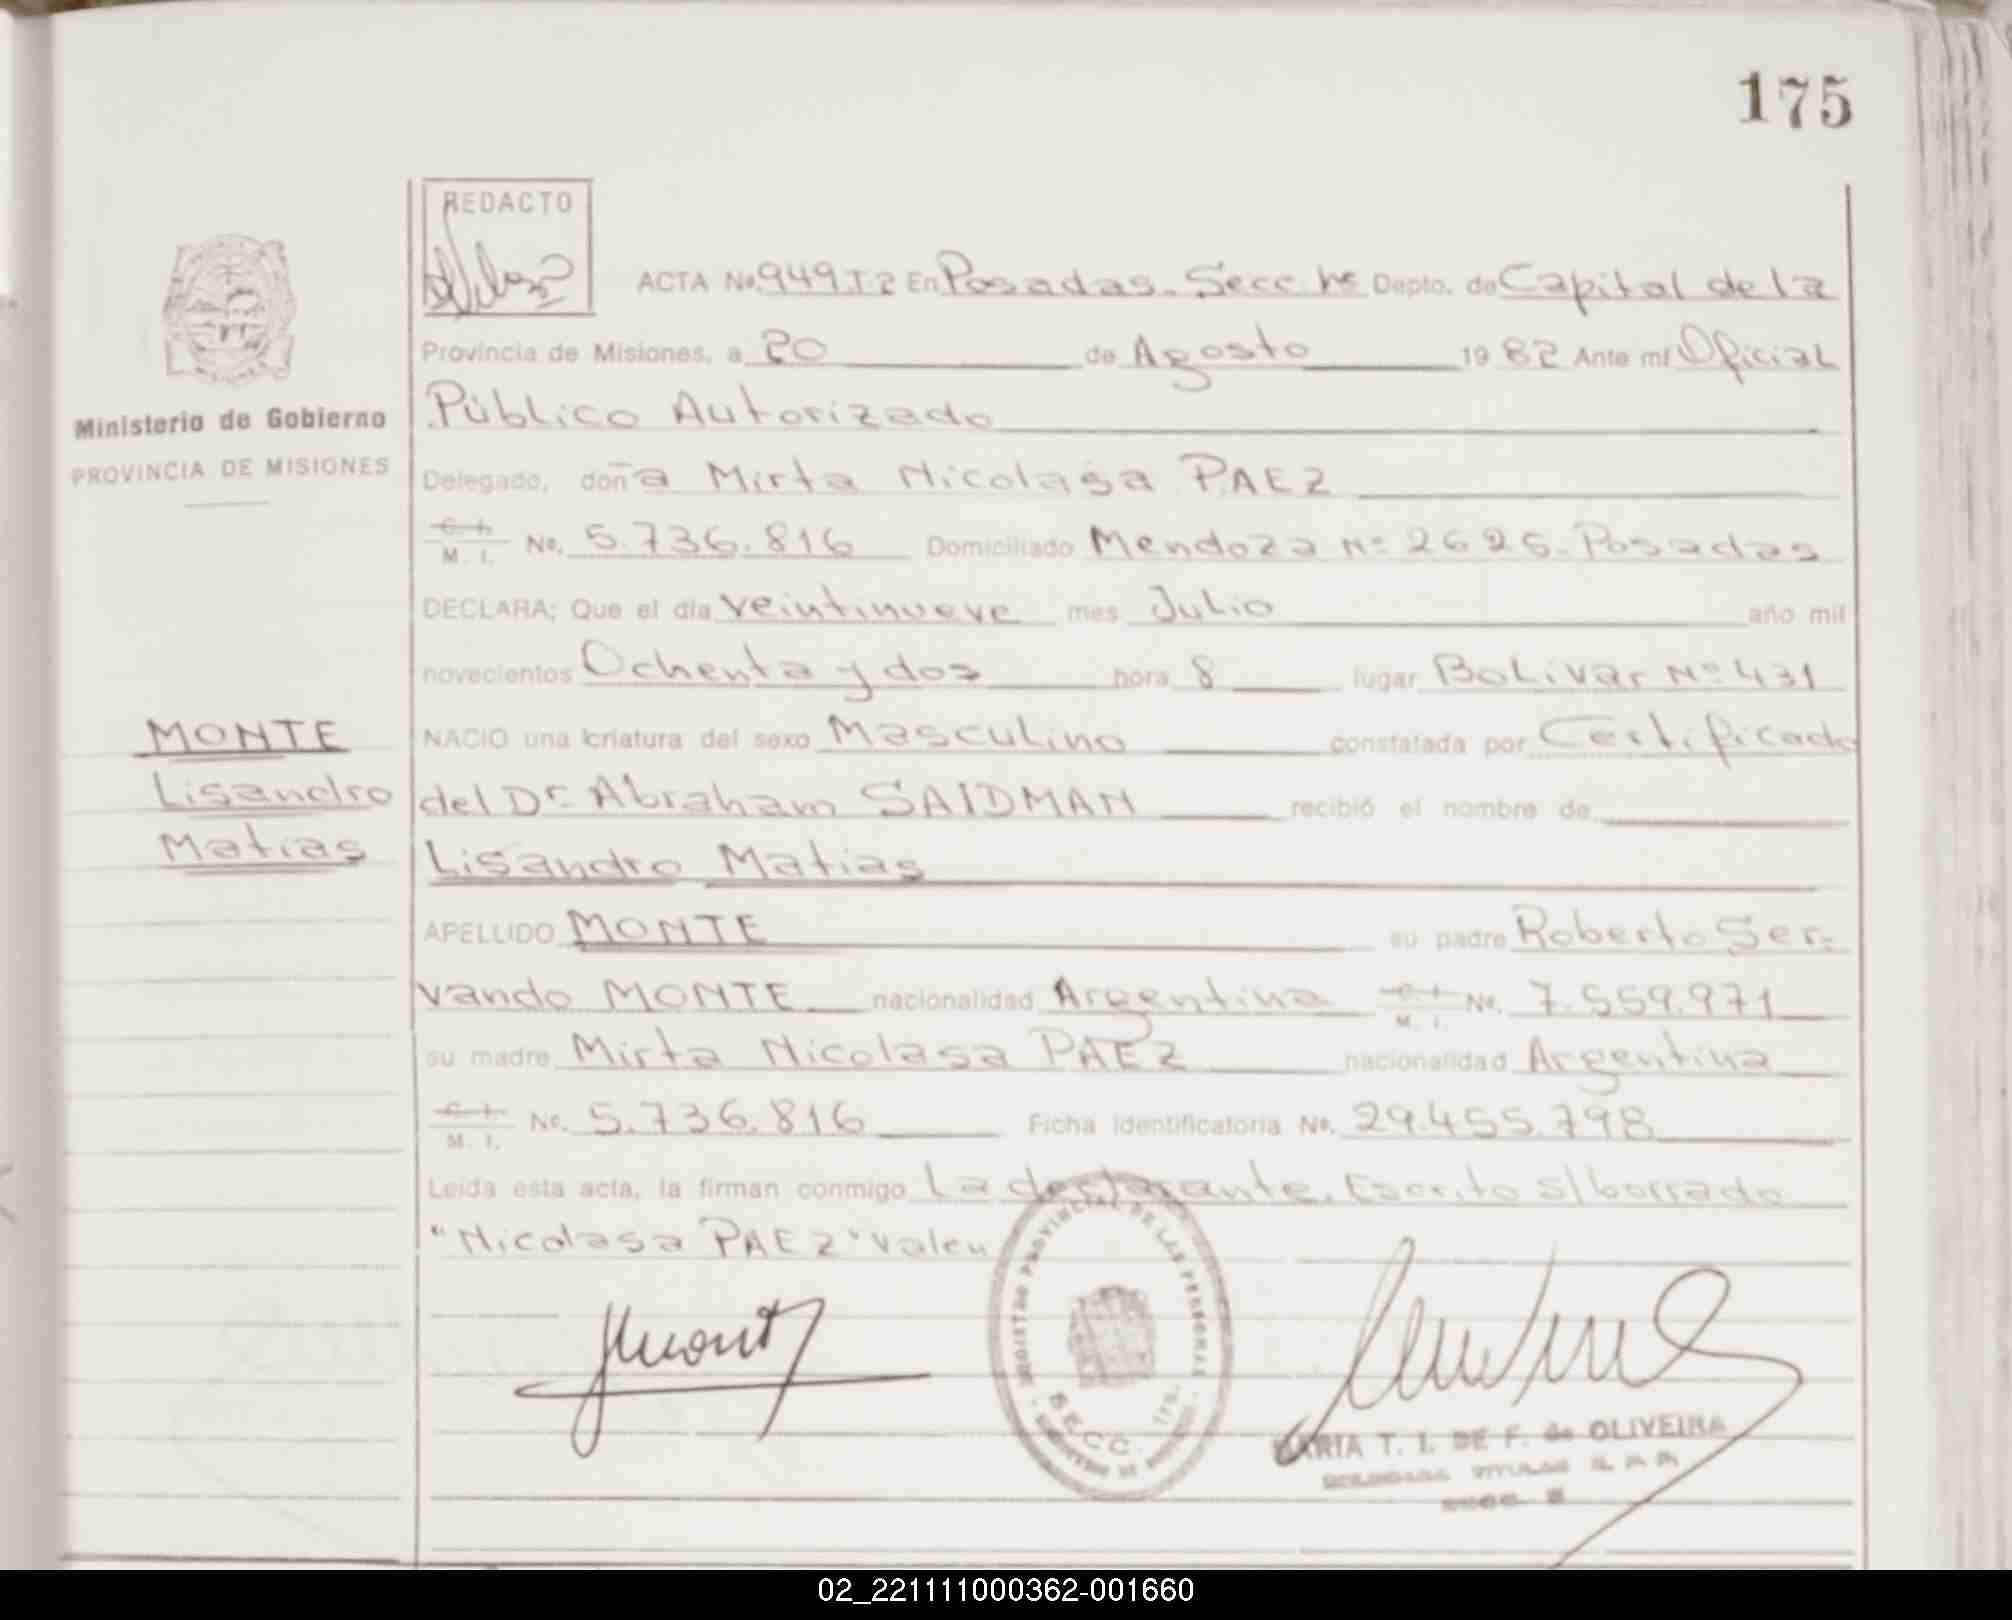 175
REDACTO
ACTA No. 949.T2 En Posadas. Secc. 1ra Depto. de Capital de la
Provincia de Misiones, a 20 de Agosto 1982 Ante mí Oficial
Público Autorizado
Ministerio de Gobierno
PROVINCIA DE MISIONES
Delegado, doña Mirta Nicolasa PAEZ
C. I. M. I. No. 5.736.816 Domiciliado Mendoza Nº 2625. Posadas
DECLARA; Que el día veintinueve mes Julio año mil
novecientos Ochenta y dos hora 8 lugar Bolívar Nº 431
MONTE
Lisandro
Matias
NACIO una criatura del sexo Masculino constatada por Certificado
del Dr. Abraham SAIDMAN recibió el nombre de
Lisandro Matias
APELLIDO MONTE su padre Roberto Ser-
vando MONTE nacionalidad Argentina C. I. M. I. No. 7.559.971
su madre Mirta Nicolasa PAEZ nacionalidad Argentina
C. I. M. I. No. 5.736.816 Ficha identificatoria No. 29.455.798
Leída esta acta, la firman conmigo La declarante. Escrito s/borrado
"Nicolasa PAEZ" Valen
REGISTRO PROVINCIAL DE LAS PERSONAS
SECC. 1ra.
MARIA T. I. DE F. de OLIVEIRA
02_221111000362-001660